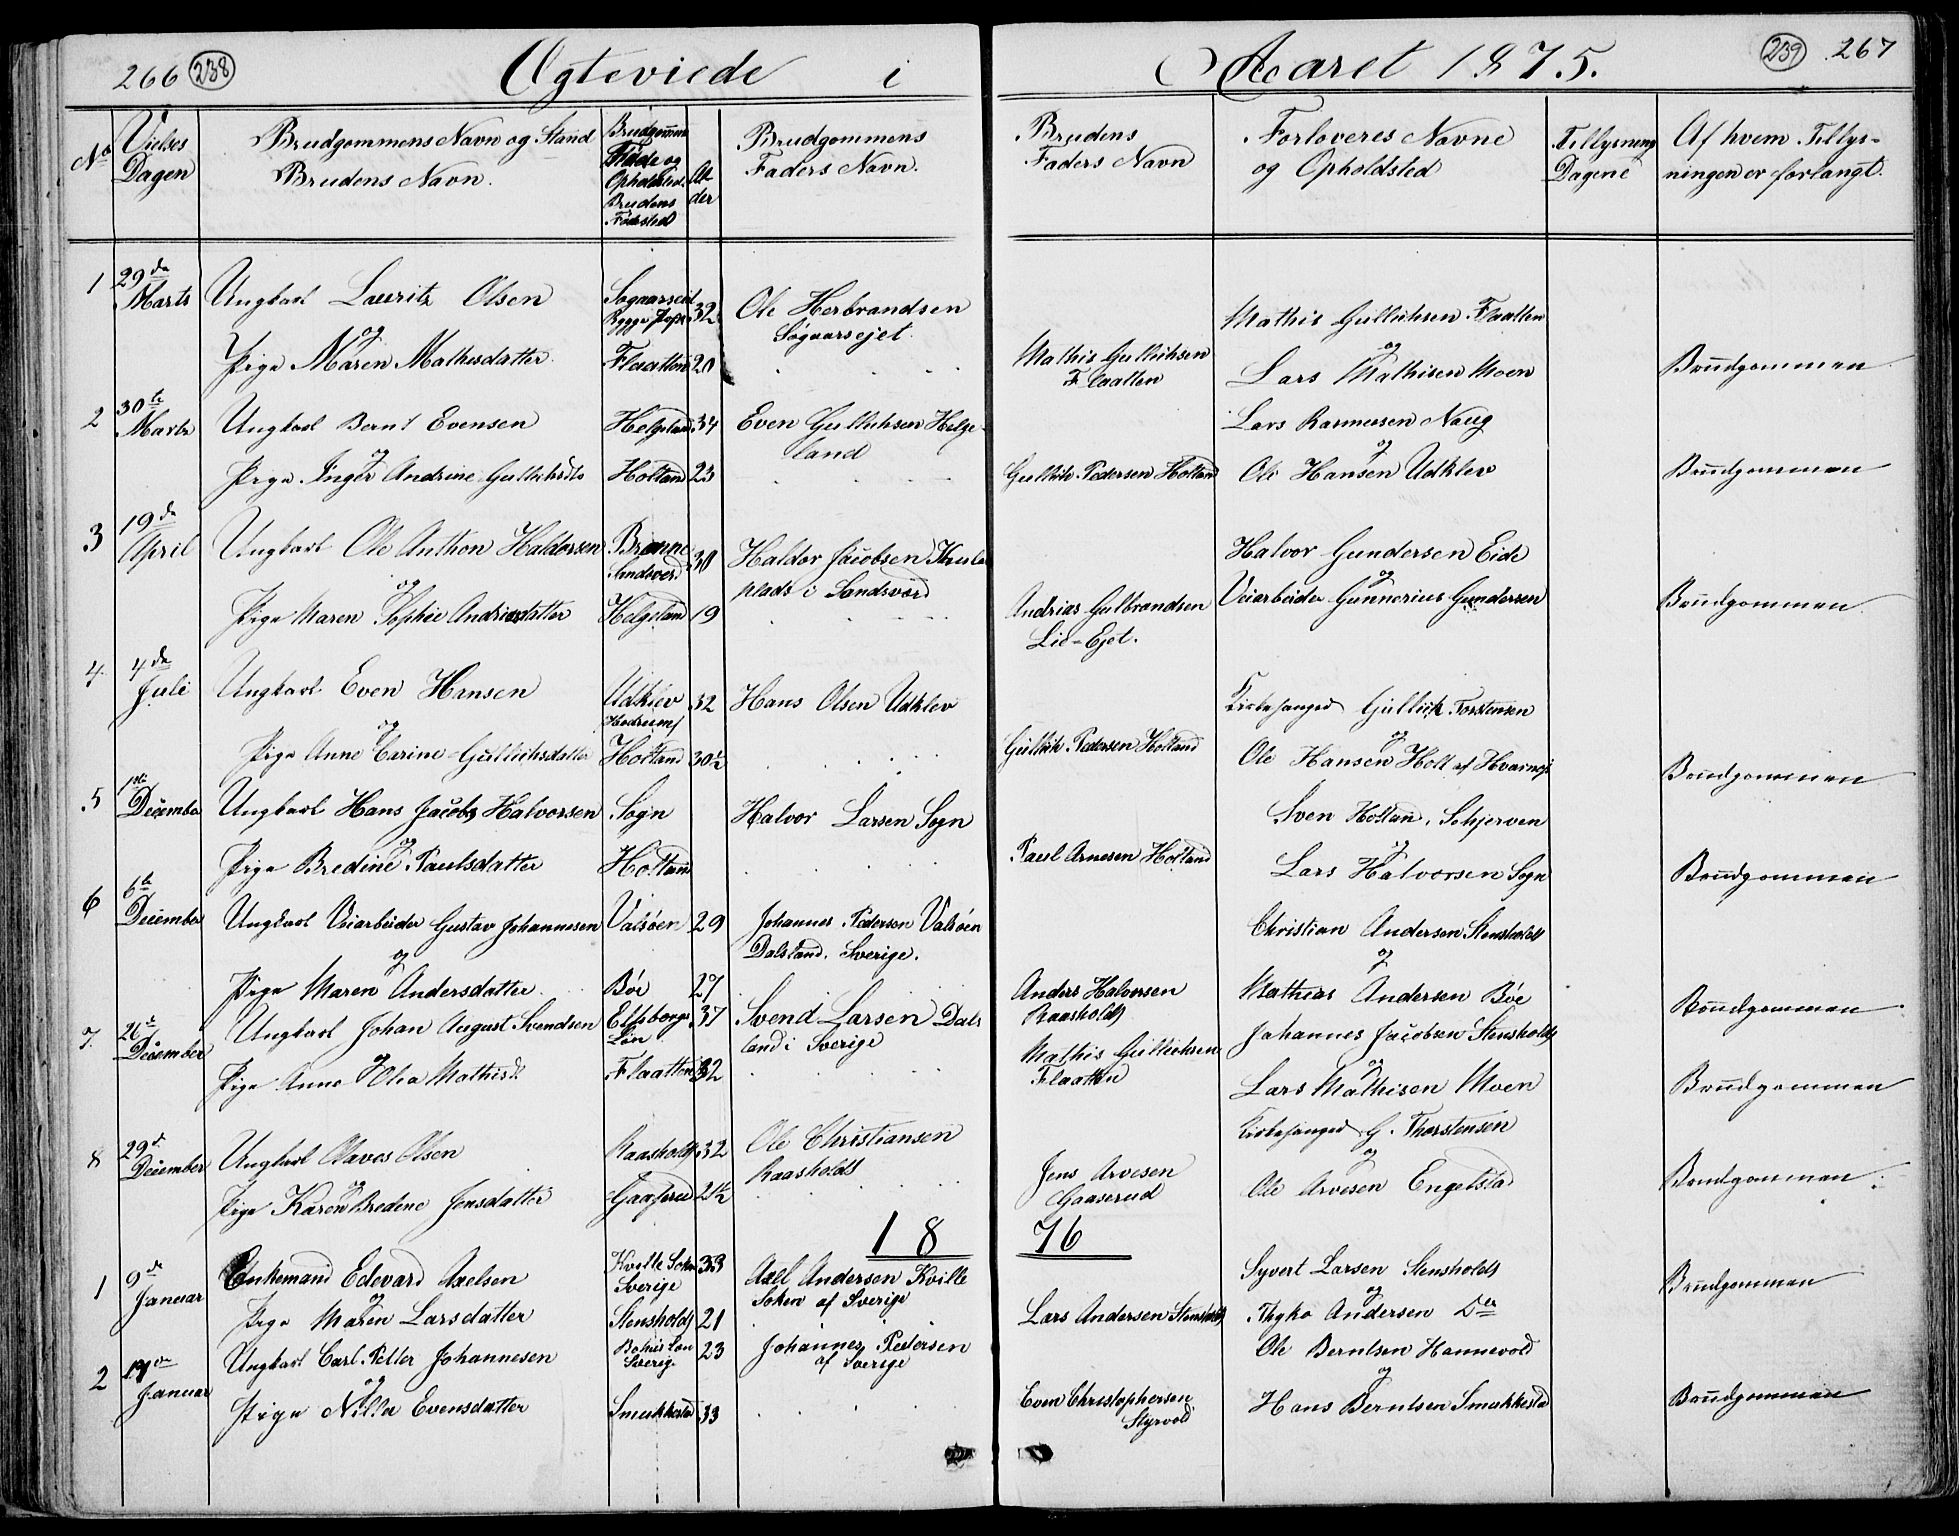 266 238 Ægteviede i Aaret 1875. 239 267
No Vielses Dagen
Brudgommens Navn og Stand
Brudens Navn.
Brudgommens Føde og Opholdsted. Brudens Fødested
Alder
Brudgommens Faders Navn.
Brudens Faders Navn
Forloveres Navne og Opholdsted
Tillysning Dagene
Af hvem Tillysningen er forlangt.
1 29de Marts
Ungkarl Lauritz Olsen
og
Pige Maren Mathisdatter
32
Flaatten 20
Ole Herbrandsen
Søgaarsejet.
Mathis Gullichsen
Flaatten
Mathis Gullichsen Flaatten
og
Lars Mathisen Moen
Brudgommen
2 30te Marts
Ungkarl Bernt Evensen
og
Pige Inger Andrine Gullichsdr
Helgeland 34
Holtand 23
Even Gullichsen Helge-
land
Gullich Pedersen Holtand
Lars Rasmusen Naug
og
Ole Hansen Udklev
Brudgommen
3 19de April
Ungkarl Ole Anthon Haldorsen
og
Pige Maren Sophie Andriasdatter
Sandsverd 30
Helgeland 19
Haldor Jacobsen
plads i Sandsverd
Andrias Gulbrandsen
Lie-Ejet.
Halvor Gundersen Eide
og
Veiarbeider Gunnerius Gundersen
Brudgommen
4 4de Juli
Ungkarl Even Hansen
og
Pige Anne Carine Gullichsdatter
Udklev
Hedrum 32
Holtand 30½
Hans Olsen Udklev
Gullich Pedersen Holtand
Kirkesanger Gullich Torstensen
og
Ole Hansen Holt af Hvarnes
Brudgommen
5 1ste December
Ungkarl Hans Jacob Halvorsen
og
Pige Bredine Paulsdatter
Sogn
Holtand
Halvor Larsen Sogn
Paul Arnesen Holtand
Sven Holtan, Schjerven
og
Lars Halvorsen Sogn
Brudgommen
6 6te December
Ungkarl Veiarbeider Gustav Johannesen
og
Pige Maren Andersdatter
Valsøen 29
Bøe 27
Johannes Pedersen Valsöen
Dalsland, Sverige.
Anders Halvorsen
Raasholdt
Christian Andersen Stensholdt
og
Mathias Andersen Bøe
Brudgommen
7 26de December
Ungkarl Johan August Svendsen
og
Pige Anne Olea Mathisd.
Elfsborgs Län 37
Flaatten 32
Svend Larsen Dals
land i Sverige
Mathis Gullichsen
Flaatten
Johannes Jacobsen Stensholdt
og
Lars Mathisen Moen
Brudgommen
8 29de December
Ungkarl Olaves Olsen
og
Pige Karen Bredene Jensdatter
Raasholdt 32
Gaaserud 21½
Ole Christiansen
Raasholdt
Jens Arvesen
Gaaserud
Kirkesanger G. Thorstensen
og
Ole Arvesen Engelstad
Brudgommen
1876
1 9de Januar
Enkemand Edevard Axelsen
og
Pige Maren Larsdatter
Kville Soken
Sverige 33
Stensholdt 21
Axel Andersen Kville
Soken af Sverige
Lars Andersen Stensholdt
Syvert Larsen Stensholdt
og
Thyko Andersen Do
Brudgommen
2 17de Januar
Ungkarl Carl Petter Johannesen
og
Pige Nille Evensdatter
Bohus Lan
Sverige 23
Smukkestad 33
Johannes Pedersen
af Sverige
Even Christophersen
Styrvold
Ole Berntsen Hannevold
og
Hans Berntsen Smukkestad
Brudgommen